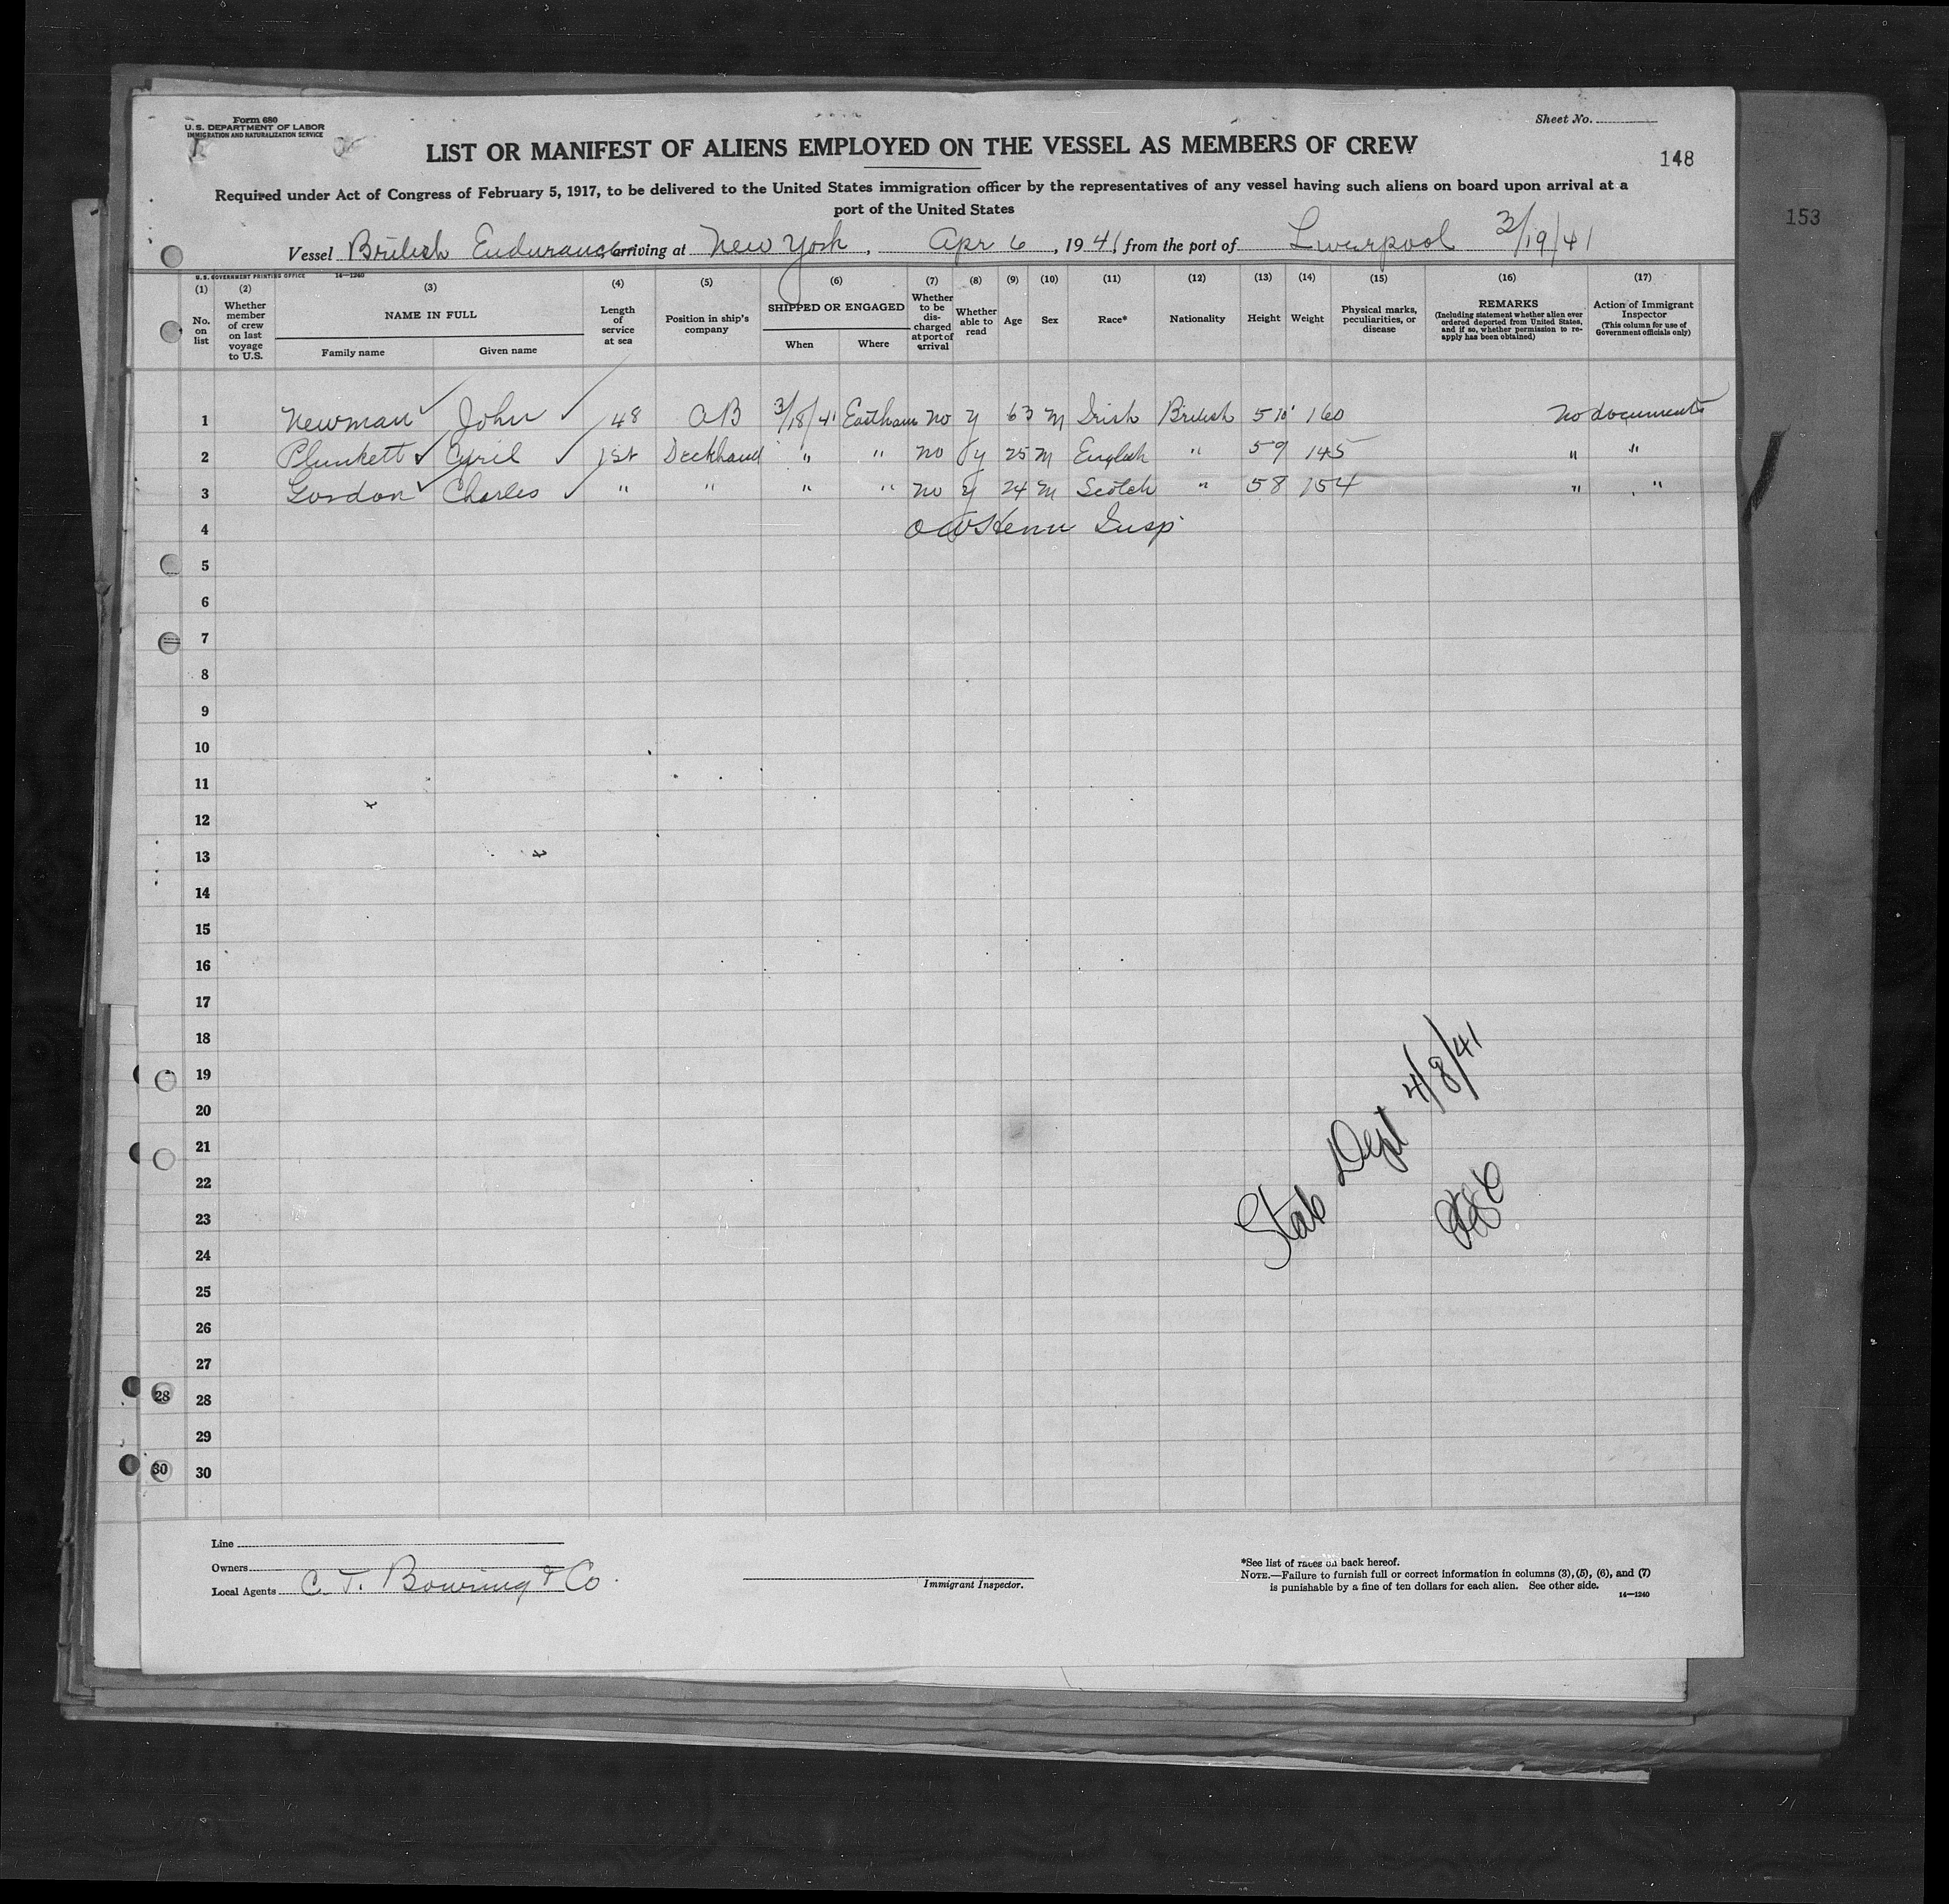 Form 680
U. S. DEPARTMENT OF LABOR
IMMIGRATION AND NATURALIZATION SERVICE
Sheet No.
LIST OR MANIFEST OF ALIENS EMPLOYED ON THE VESSEL AS MEMBERS OF CREW
148
153
Required under Act of Congress of February 5, 1917, to be delivered to the United States immigration officer by the representatives of any vessel having such aliens on board upon arrival at a
port of the United States
Vessel British Endurance arriving at New York, Apr 6, 1941, from the port of Liverpool 3/19/41
U. S. GOVERNMENT PRINTING OFFICE 14—1240
(1) No. on list
(2) Whether member of crew on last voyage to U.S.
(3) NAME IN FULL Family name Given name
(4) Length of service at sea
(5) Position in ship's company
(6) SHIPPED OR ENGAGED When Where
(7) Whether to be discharged at port of arrival
(8) Whether able to read
(9) Age
(10) Sex
(11) Race*
(12) Nationality
(13) Height
(14) Weight
(15) Physical marks, peculiarities, or disease
(16) REMARKS (Including statement whether alien ever ordered deported from United States, and if so, whether permission to re-apply has been obtained)
(17) Action of Immigrant Inspector (This column for use of Government officials only)
1 Newman John 48 AB 3/18/41 Eastham no y 63 M Irish British 5 10 160 no documents
2 Plunkett Cyril 1st Deckhand " " no y 25 M English " 5 9 145 " "
3 Gordon Charles " " " " no y 24 M Scotch " 5 8 154 " "
4 Insp
5
6
7
8
9
10
11
12
13
14
15
16
17
18
19
20
21
22
23
24
25
26
27
28 28
29
30 30
State Dept 4/8/41
Line
Owners
Local Agents C. T. Bowring & Co.
Immigrant Inspector.
*See list of races on back hereof.
NOTE.—Failure to furnish full or correct information in columns (3), (5), (6), and (7)
is punishable by a fine of ten dollars for each alien. See other side.
14—1240